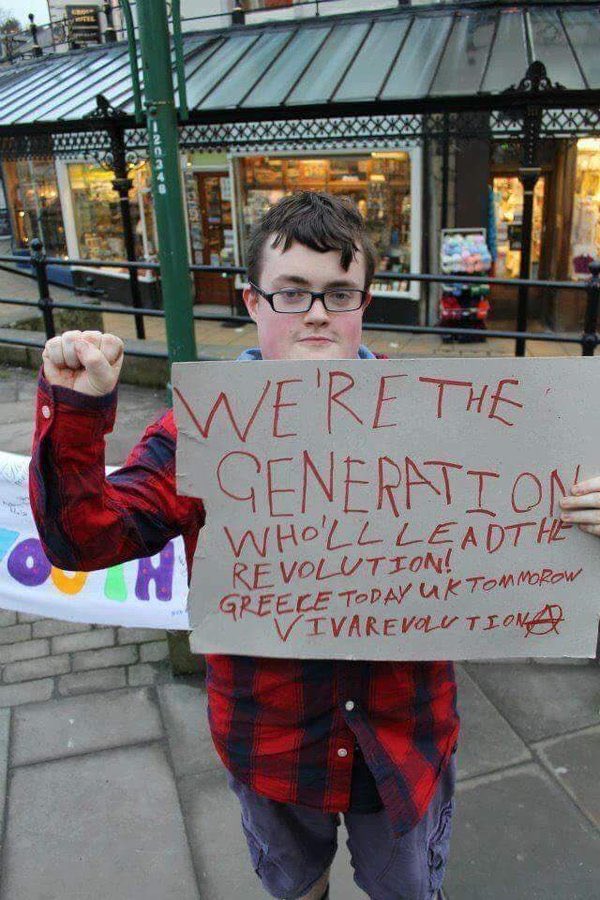 120348
WE'RE THE
GENERATION
WHO'LL LEAD THE
REVOLUTION!
GREECE TODAY UK TOMMOROW
VIVA REVOLUTION Ⓐ
YOUTH